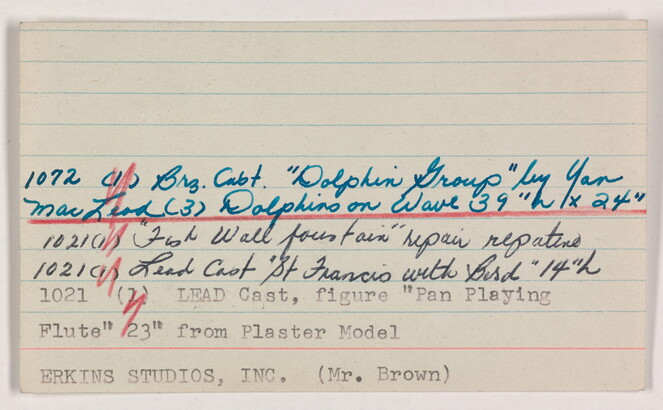 1072 (1) Brz. Cast. "Dolphin Group" by Yan
Mac Leod (3) Dolphins on Wave 39"h x 24"
1021(1) "Fish Wall fountain" repair repatine
1021(1) Lead Cast "St Francis with Bird" 14"h
1021 (1) LEAD Cast, figure "Pan Playing
Flute" 23" from Plaster Model
ERKINS STUDIOS, INC. (Mr. Brown)